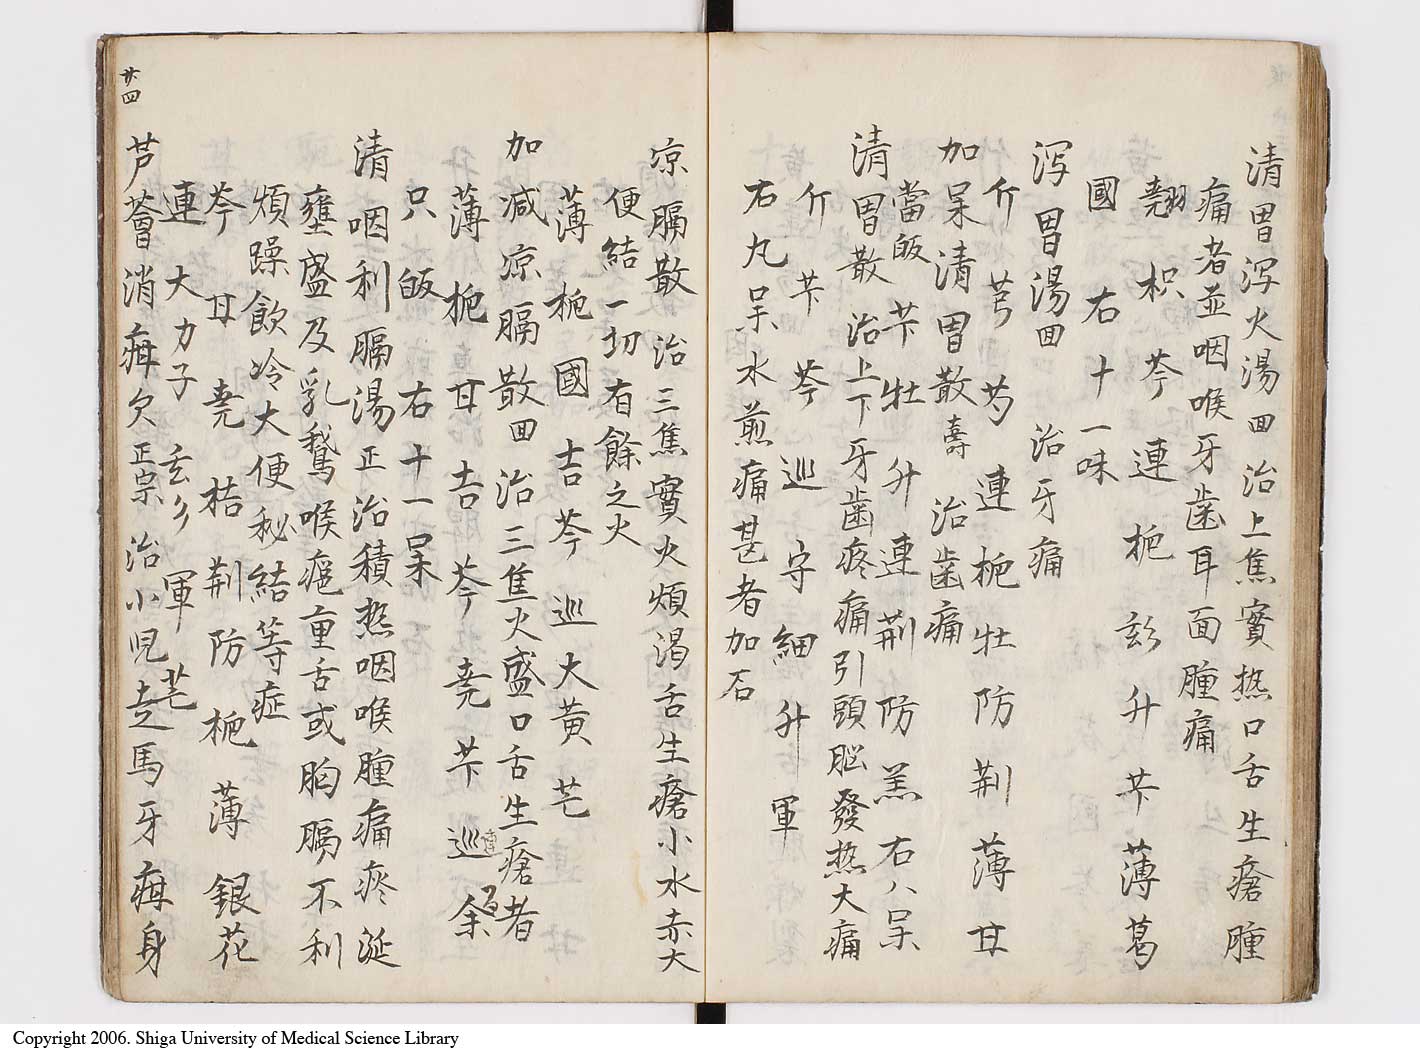 清胃泻火湯回 治上焦實热口舌生瘡腫
痛者並咽喉牙歯耳面腫痛
翹 枳 芩 連 栀 玄 升 芐 薄 葛
國 右十一味
泻胃湯回 治牙痛
个 芎 芍 連 栀 牡 防 荆 薄 甘
加呆清胃散壽 治歯痛
當皈 芐 牡 升 連 荆 防 羔 右八呆
清胃散 治上下牙歯疼痛引頭脳發热大痛
个 芐 芩 巡 守 細 升 軍
右丸呆水煎痛甚者加石
凉膈散 治三焦實火煩渇舌生瘡小水赤大
便結一切有餘之火
薄 栀 國 吉 芩 巡 大黄 芒
加减凉膈散回 治三焦火盛口舌生瘡者
薄 栀 甘 吉 芩 尭 芐 巡
只 皈 右十一呆
清咽利膈湯正治積热咽喉腫痛疼涎
壅盛及乳鵞喉痺重舌或胸膈不利
煩躁飲冷大便秘結等症
芩 甘 尭 桔 荆 防 栀 薄 銀花
連 大力子 玄 軍 芒
芦薈消疳欠正宗治小児走馬牙疳身
廿四
Copyright 2006. Shiga University of Medical Science Library